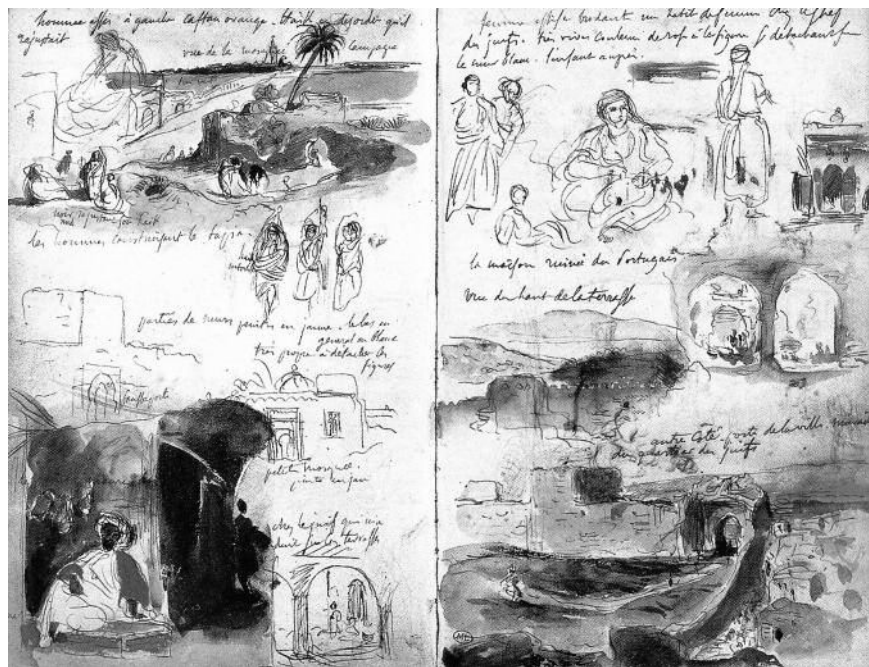 homme assis à gauche caftan orange. haïk en desordre qu'il
rajustait
vue de la mosquée campagne
noir rajustant son haik
les hommes construisant le
parties de murs peintes en jaune. le bas en
general en blanc
très propre à detacher les
figures
petite mosquée.
peinte en jaune
chez le juif qui m'a
sur les terrasse
femme juive brodant un habit de femme chez
des juifs. très vive couleur de rose à la figure se detachant sur
le mur blanc. l'enfant auprès.
la maison ruinée du Portugais
vue du haut de la terrasse
autre côté porte de la ville
du quartier des juifs